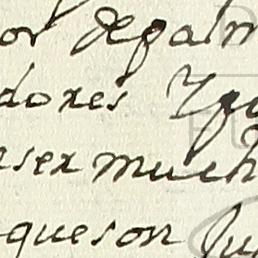 or depalm
dores Ygu
ser much
queson Ju